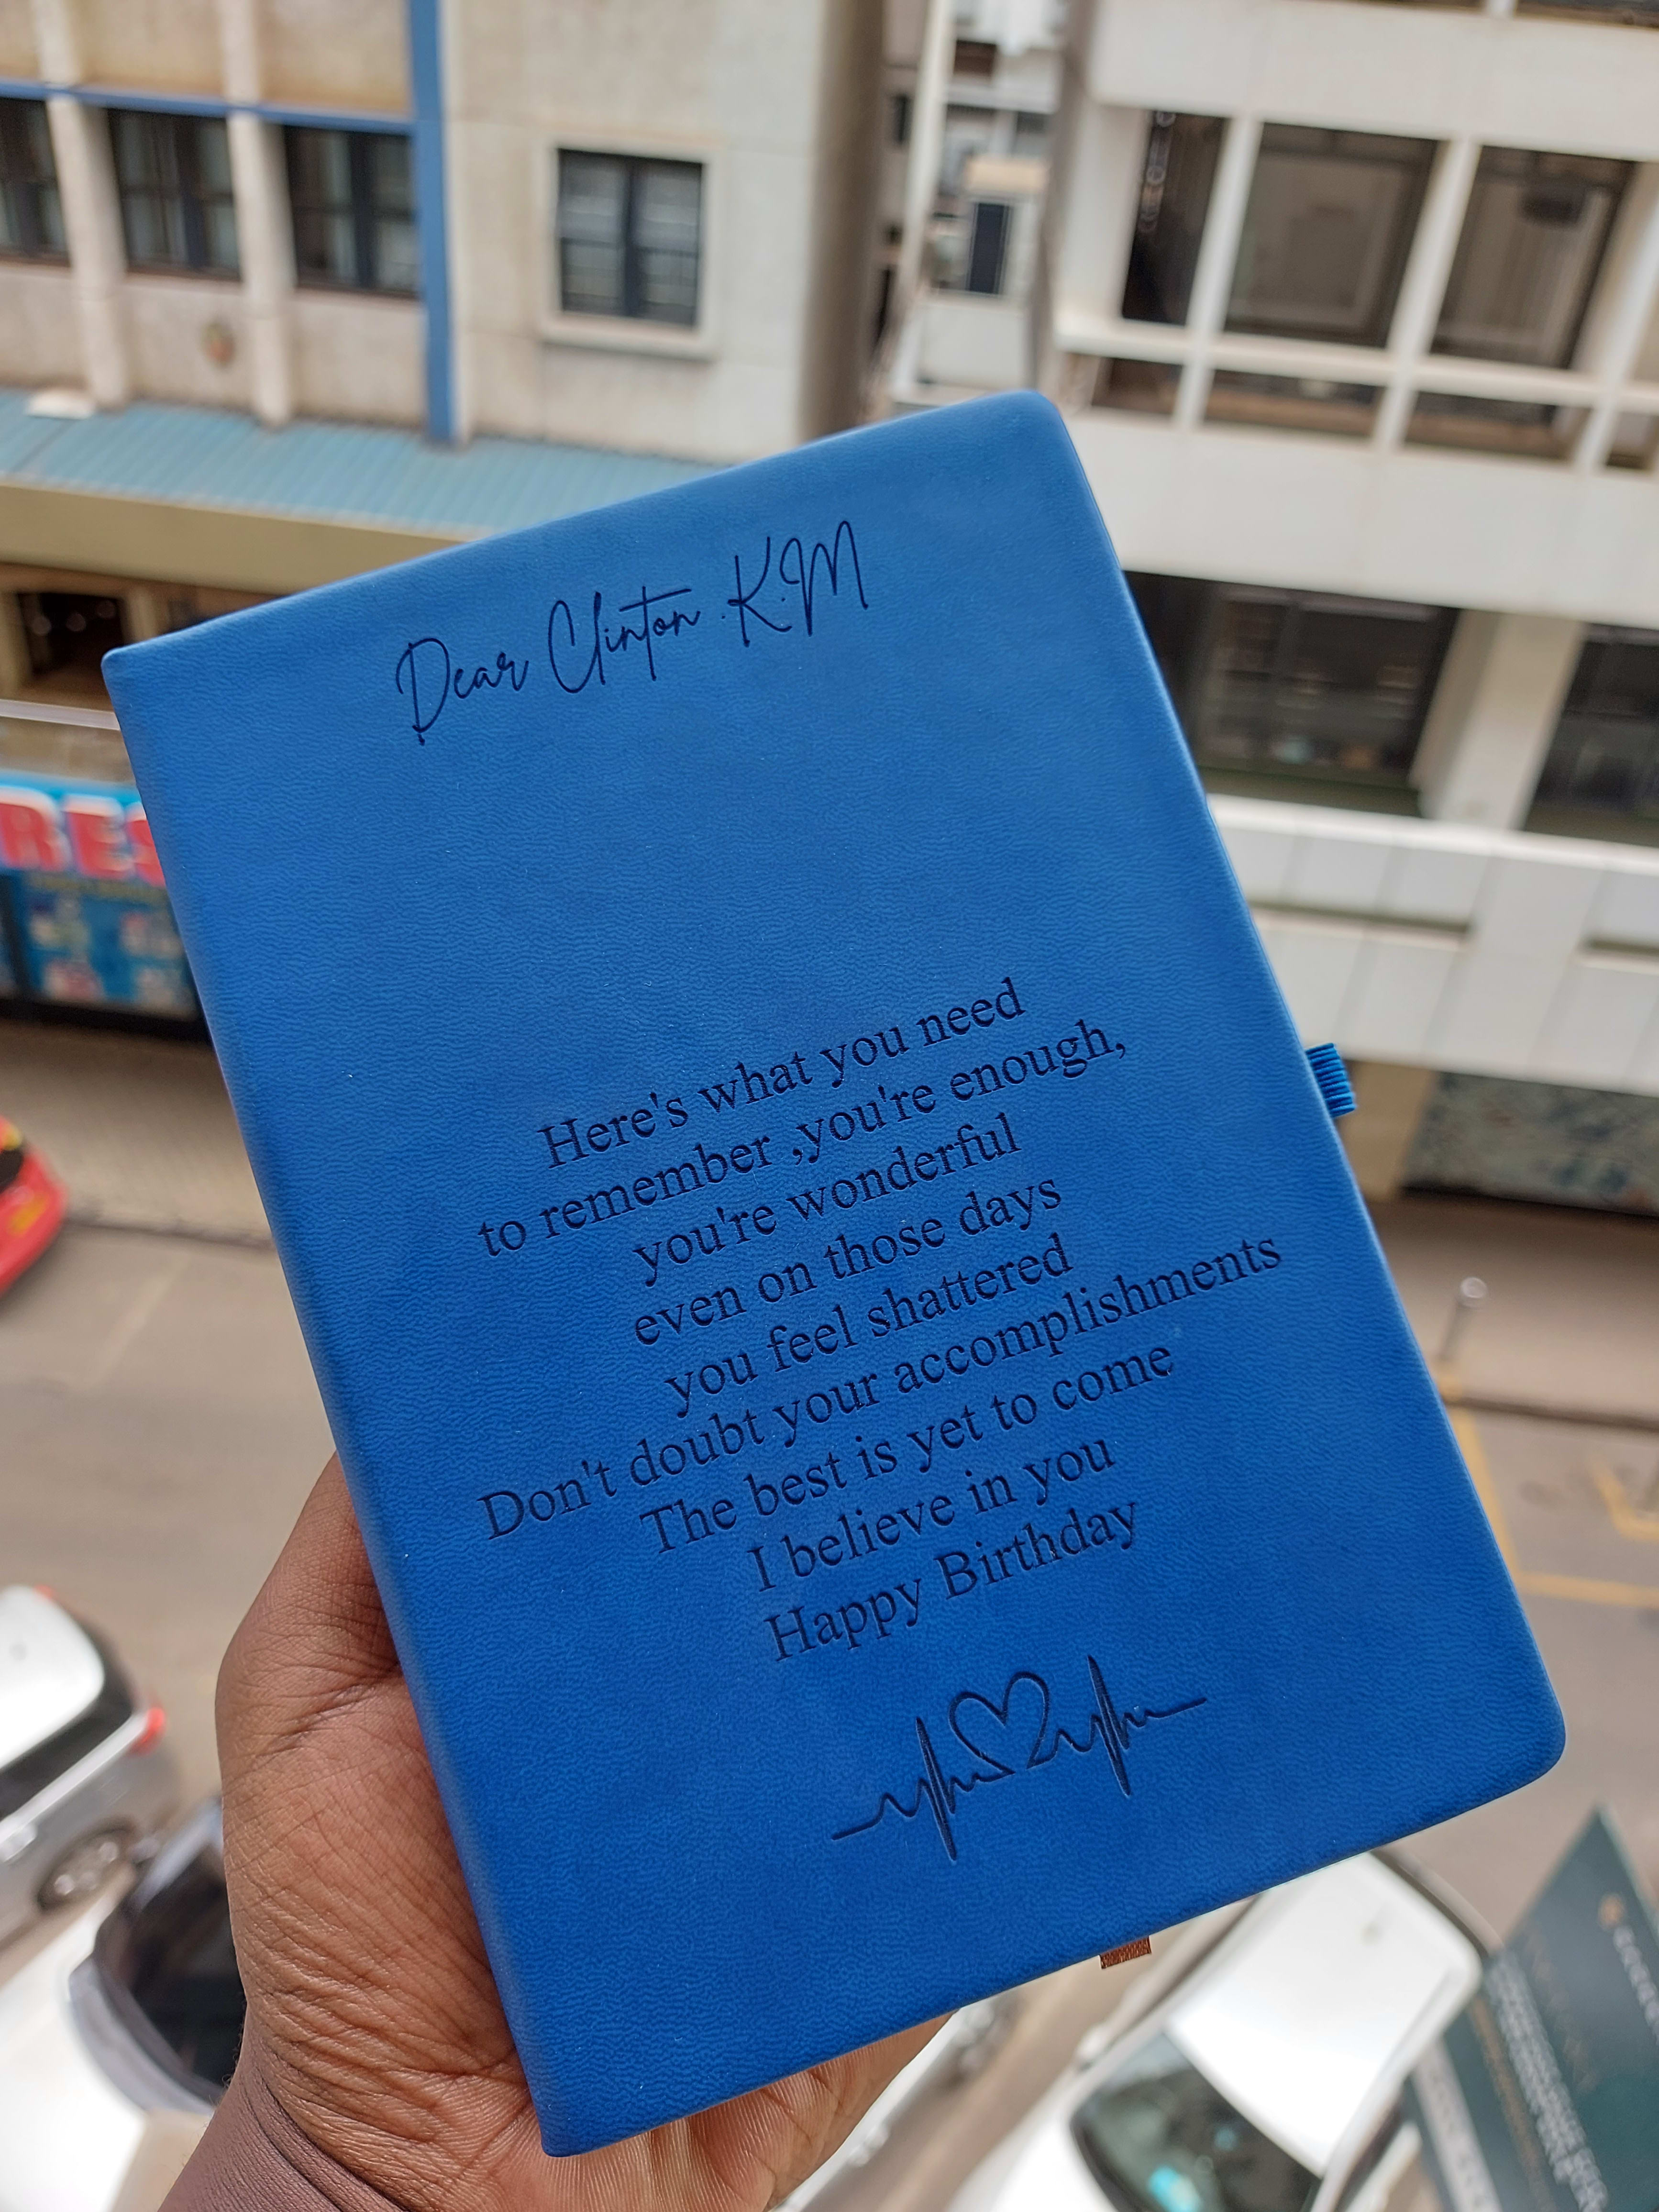 Dear Clinton .K.M
Here's what you need
to remember ,you're enough,
you're wonderful
even on those days
you feel shattered
Don't doubt your accomplishments
The best is yet to come
I believe in you
Happy Birthday
RES